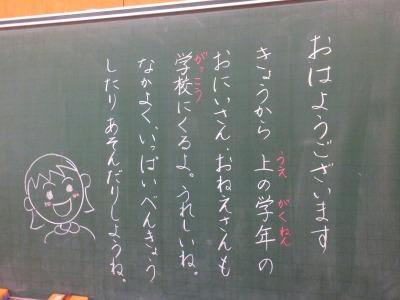 おはようございます
きょうから 上の学年の
うえ がくねん
おにいさん・おねえさんも
学校にくるよ。うれしいね。
がっこう
なかよく、いっぱいべんきょう
したり あそんだりしようね。